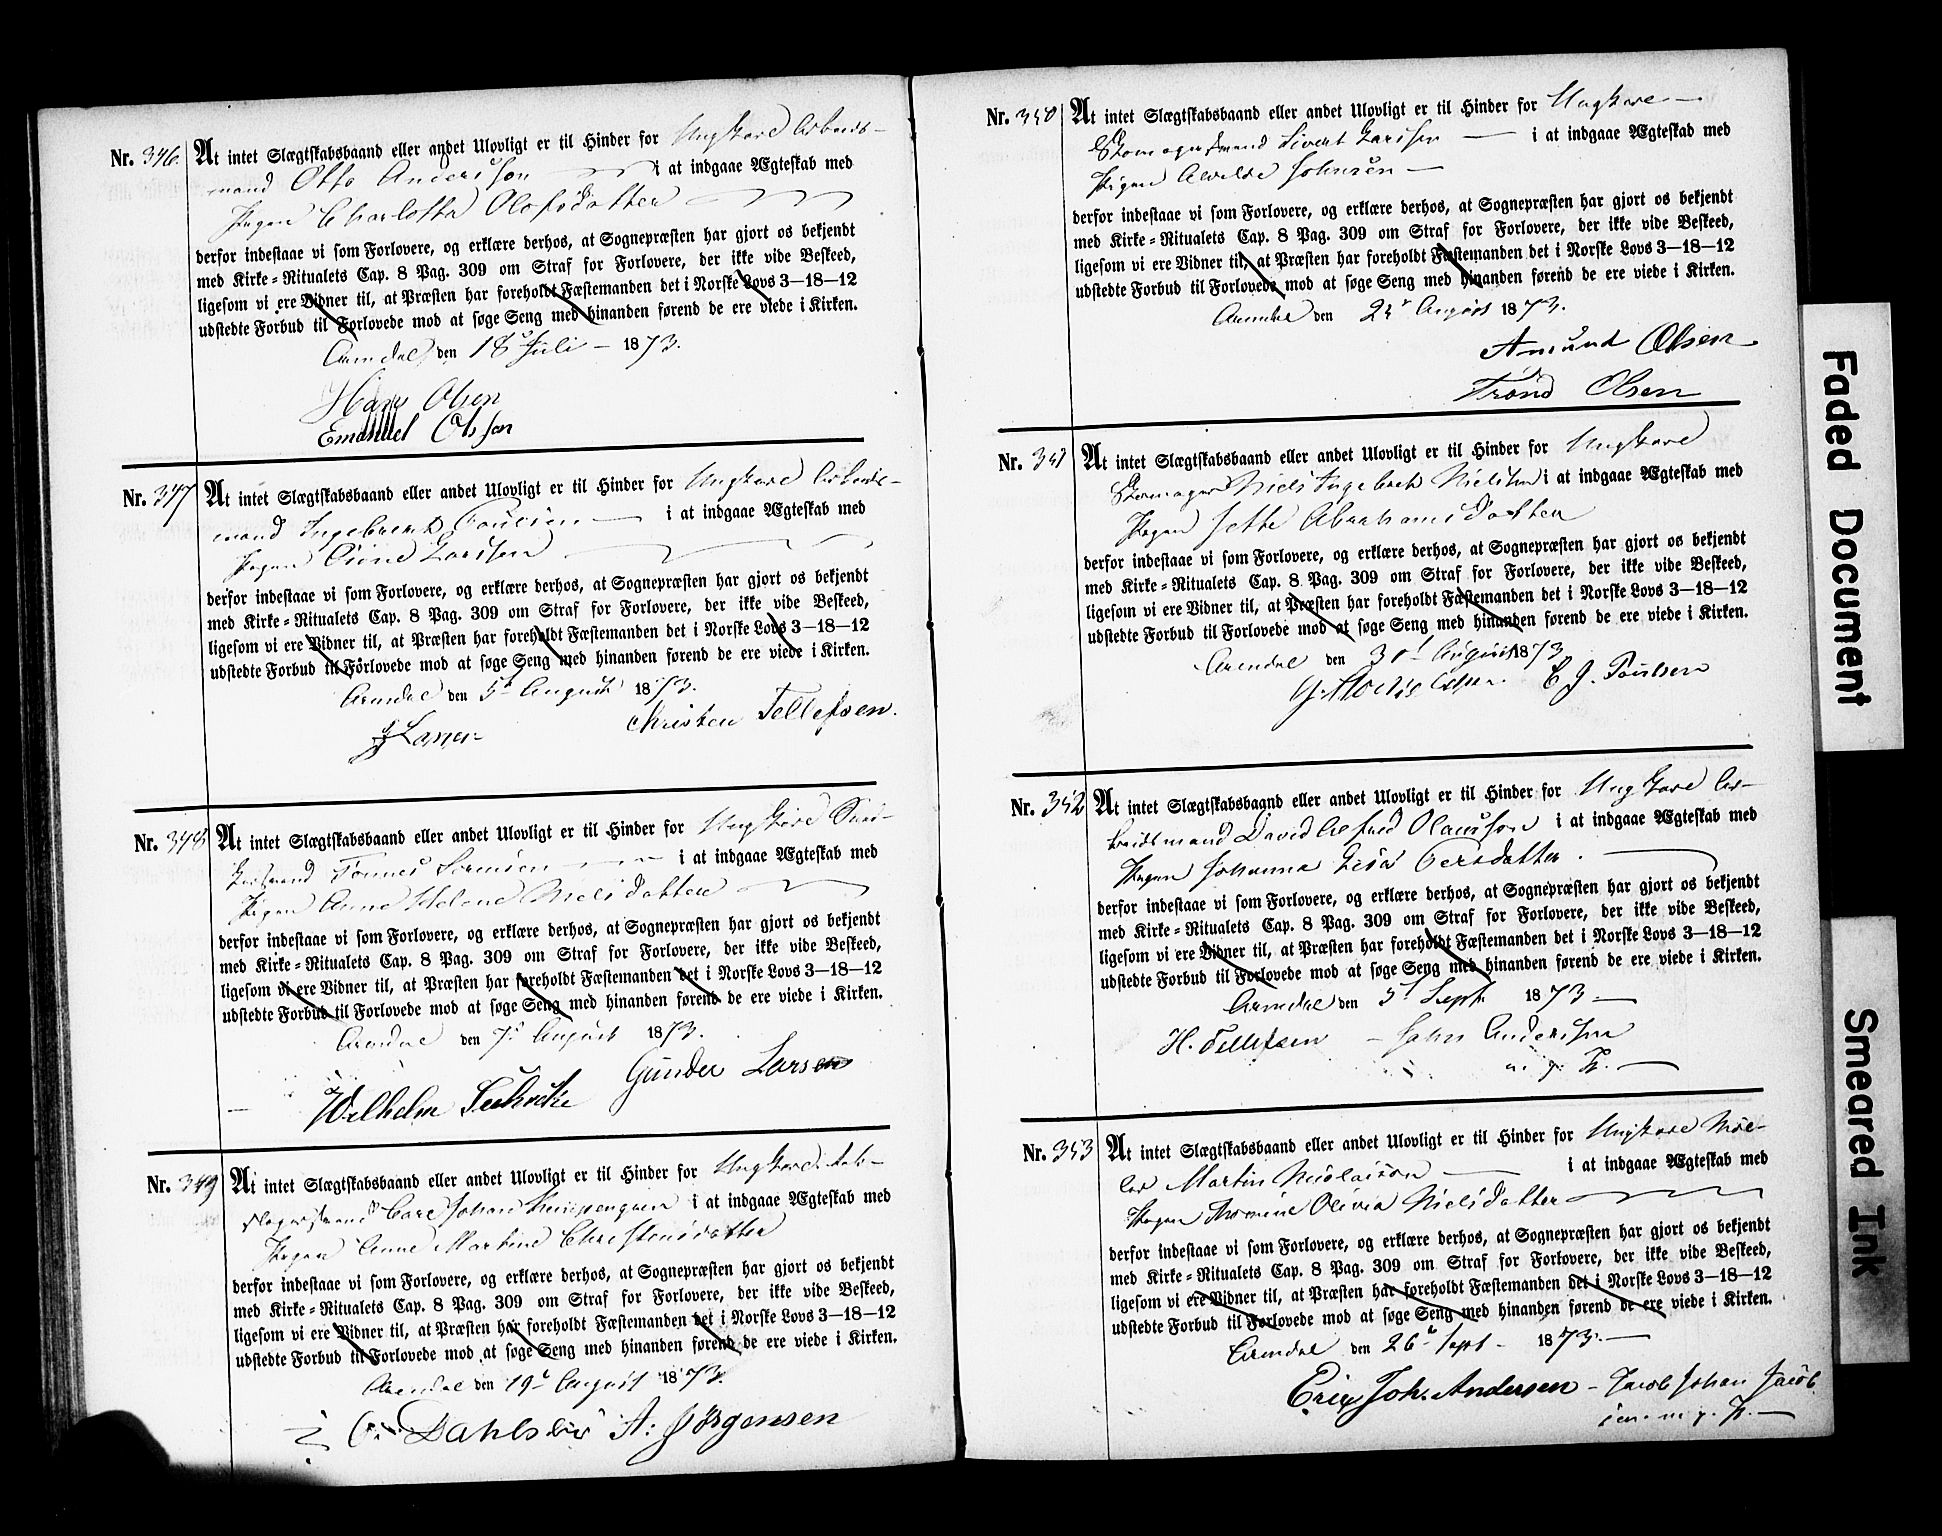 Nr. 346. At intet Slægtskabsbaand eller andet Ulovligt er til Hinder for Ungkarl Arbeids-
mand Otto Anderssen i at indgaae Ægteskab med
Pigen Charlotta Olofsdatter
derfor indestaae vi som Forlovere, og erklære derhos, at Sognepræsten har gjort os bekjendt
med Kirke-Ritualets Cap. 8 Pag. 309 om Straf for Forlovere, der ikke vide Beskeed,
ligesom vi ere Vidner til, at Præsten har foreholdt Fæstemanden det i Norske Lovs 3—18—12
udstedte Forbud til Forlovede mod at søge Seng med hinanden førend de ere viede i Kirken.
Arendal den 18 Juli 1873.
Hans Olsen
Emanuel Olssen
Nr. 347 At intet Slægtskabsbaand eller andet Ulovligt er til Hinder for Ungkarl Arbeids-
mand Ingebrecht Poulsen i at indgaae Ægteskab med
Pigen Larssen
derfor indestaae vi som Forlovere, og erklære derhos, at Sognepræsten har gjort os bekjendt
med Kirke-Ritualets Cap. 8 Pag. 309 om Straf for Forlovere, der ikke vide Beskeed,
ligesom vi ere Vidner til, at Præsten har foreholdt Fæstemanden det i Norske Lovs 3—18—12
udstedte Forbud til Forlovede mod at søge Seng med hinanden førend de ere viede i Kirken.
Arendal den 5t August 1873.
Christen Tellefsen.
Nr. 348 At intet Slægtskabsbaand eller andet Ulovligt er til Hinder for Ungkarl
Tønnes Sørensen i at indgaae Ægteskab med
Pigen Anne Helene Nielsdatter
derfor indestaae vi som Forlovere, og erklære derhos, at Sognepræsten har gjort os bekjendt
med Kirke-Ritualets Cap. 8 Pag. 309 om Straf for Forlovere, der ikke vide Beskeed,
ligesom vi ere Vidner til, at Præsten har foreholdt Fæstemanden det i Norske Lovs 3—18—12
udstedte Forbud til Forlovede mod at søge Seng med hinanden førend de ere viede i Kirken.
Arendal den 7t August 1873.
Gunder Larsen
Wilhelm
Nr. 349 At intet Slægtskabsbaand eller andet Ulovligt er til Hinder for Ungkarl
Carl Johan i at indgaae Ægteskab med
Pigen Anne Martine Christensdatter
derfor indestaae vi som Forlovere, og erklære derhos, at Sognepræsten har gjort os bekjendt
med Kirke-Ritualets Cap. 8 Pag. 309 om Straf for Forlovere, der ikke vide Beskeed,
ligesom vi ere Vidner til, at Præsten har foreholdt Fæstemanden det i Norske Lovs 3—18—12
udstedte Forbud til Forlovede mod at søge Seng med hinanden førend de ere viede i Kirken.
Arendal den 19t August 1873.
A: Jörgensen
Nr. 350 At intet Slægtskabsbaand eller andet Ulovligt er til Hinder for Ungkarl
Skomagersvend Sivert Larssen i at indgaae Ægteskab med
Pigen Alvilde Johnsen
derfor indestaae vi som Forlovere, og erklære derhos, at Sognepræsten har gjort os bekjendt
med Kirke-Ritualets Cap. 8 Pag. 309 om Straf for Forlovere, der ikke vide Beskeed,
ligesom vi ere Vidner til, at Præsten har foreholdt Fæstemanden det i Norske Lovs 3—18—12
udstedte Forbud til Forlovede mod at søge Seng med hinanden førend de ere viede i Kirken.
Arendal den August 1873.
Amund Olsen
Trond Olsen
Nr. 351 At intet Slægtskabsbaand eller andet Ulovligt er til Hinder for Ungkarl
Skomager Niels Ingebret Nielsen i at indgaae Ægteskab med
Pigen Jette Abrahamsdatter
derfor indestaae vi som Forlovere, og erklære derhos, at Sognepræsten har gjort os bekjendt
med Kirke-Ritualets Cap. 8 Pag. 309 om Straf for Forlovere, der ikke vide Beskeed,
ligesom vi ere Vidner til, at Præsten har foreholdt Fæstemanden det i Norske Lovs 3—18—12
udstedte Forbud til Forlovede mod at søge Seng med hinanden førend de ere viede i Kirken.
Arendal den August 1873
C J. Poulsen
Nr. 352 At intet Slægtskabsbaand eller andet Ulovligt er til Hinder for Ungkarl Ar-
beidsmand David Alfred Olausson i at indgaae Ægteskab med
Pigen Johanna Lisa Persdatter.
derfor indestaae vi som Forlovere, og erklære derhos, at Sognepræsten har gjort os bekjendt
med Kirke-Ritualets Cap. 8 Pag. 309 om Straf for Forlovere, der ikke vide Beskeed,
ligesom vi ere Vidner til, at Præsten har foreholdt Fæstemanden det i Norske Lovs 3—18—12
udstedte Forbud til Forlovede mod at søge Seng med hinanden førend de ere viede i Kirken.
Arendal den 5t Sept 1873
H. Tellefsen – John Anderssen
m. p. P.
Nr. 353 At intet Slægtskabsbaand eller andet Ulovligt er til Hinder for Ungkarl Mæg-
ler Martin Nicolaisen i at indgaae Ægteskab med
Pigen Thomine Olivia Nielsdatter
derfor indestaae vi som Forlovere, og erklære derhos, at Sognepræsten har gjort os bekjendt
med Kirke-Ritualets Cap. 8 Pag. 309 om Straf for Forlovere, der ikke vide Beskeed,
ligesom vi ere Vidner til, at Præsten har foreholdt Fæstemanden det i Norske Lovs 3—18—12
udstedte Forbud til Forlovede mod at søge Seng med hinanden førend de ere viede i Kirken.
Arendal den 26t Sept. 1873.
Erik Joh. Andersen – Jacob Johan Jacob
sen. m. p. P.
Faded Document
Smeared Ink